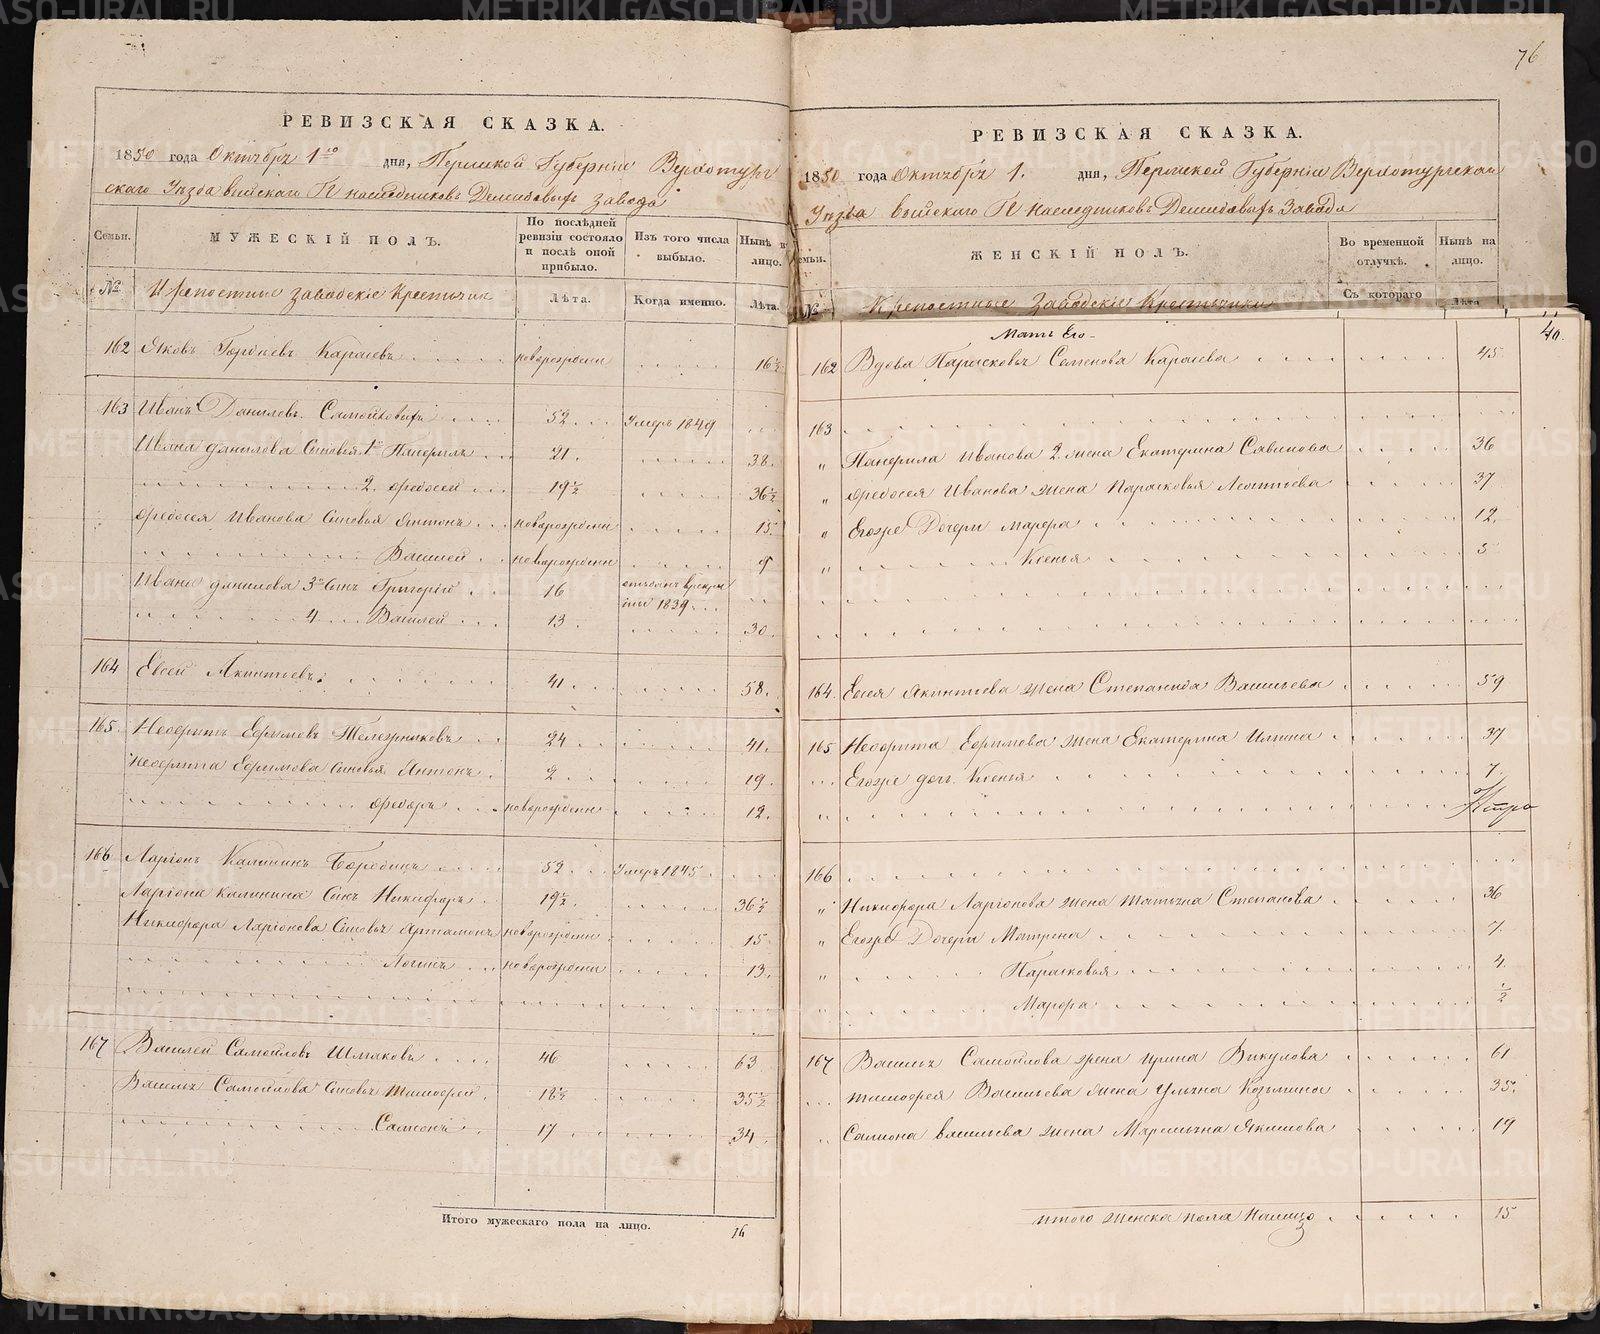 76
РЕВИЗСКАЯ СКАЗКА.
1850 года Октября 1го дня, Пермской Губернии Верхотур
скаго Уезда Выйскаго Гг наследниковъ Демидовыхъ завода
Семьи.
МУЖЕСКІЙ ПОЛЪ.
По послѣдней ревизіи состояло и послѣ оной прибыло.
Изъ того числа выбыло.
Нынѣ въ лицо.
№
Крепостные заводскіе Крестьяне
Лѣта.
Когда именно.
Лѣта.
162 Яковъ Карпаевъ новорожденн 16½
163 Иванъ Даниловъ 52 Умеръ 1849
Ивана Данилова Сыновья 1й Панфилъ 21. 38.
2. Федосей 19½ 36½
Федосея Иванова Сыновья Антонъ новорожденн 15.
Василей новорожденн 9
Ивана Данилова 3й Сынъ Григорій 16 отъданъ в рекру
ты 1839
4 Василей 13. 30.
164 Евсей Акинтьевъ 41 58.
165. Неофитъ Ефимовъ Железниковъ 24 41.
Неофита Ефимова Сыновья Антонъ 2 19.
Федоръ новорожденн 12.
166 Ларіонъ Калининъ Бородинъ 52 Умеръ 1845
Ларіона Калинина Сынъ Никифоръ 19½ 36½
Никифора Ларіонова Сыновья Артамонъ новорожденн 15
Логинъ новорожденн 13.
167 Василей Самойловъ Шмаковъ 46 63
Василья Самойлова Сыновья Тимофей 18½ 35½
Самсонъ 17 34
Итого мужескаго пола на лицо. 16
РЕВИЗСКАЯ СКАЗКА.
1850 года Октября 1. дня, Пермской Губерніи Верхотурскаго
Уезда Выйскаго Гг наследниковъ Демидовыхъ Завода
семьи.
ЖЕНСКІЙ ПОЛЪ.
Во временной отлучкѣ.
Нынѣ на лицо.
№
Крепостные Заводскіе Крестьянки
Съ котораго
Лѣта
Мать Его
162 Вдова Парасковья Семенова Карпаева 45
163
" Панфила Иванова 2. жена Екатерина Савинова 36
" Федосея Иванова жена Парасковья Леонтьева 37
" Егоже Дочери Марфа 12.
" Ксенья 5
164. Евсея Акинтьева жена Степанида Васильева 59
165 Неофита Ефимова жена Екатерина Ильина 37
Егоже дочь Ксенья 7.
166
" Никифора Ларіонова жена Татьяна Степанова 36
" Егоже Дочери Матрена 7.
" Парасковья 4.
Марфа ½
167 Василья Самойлова жена Ирина Викулова 61
Тимофея Васильева жена Ульяна Козьмина 35.
Самсона Васильева жена Маремьяна Якимова 19
Итого женска пола налицо 15
METRIKI.GASO-URAL.RU